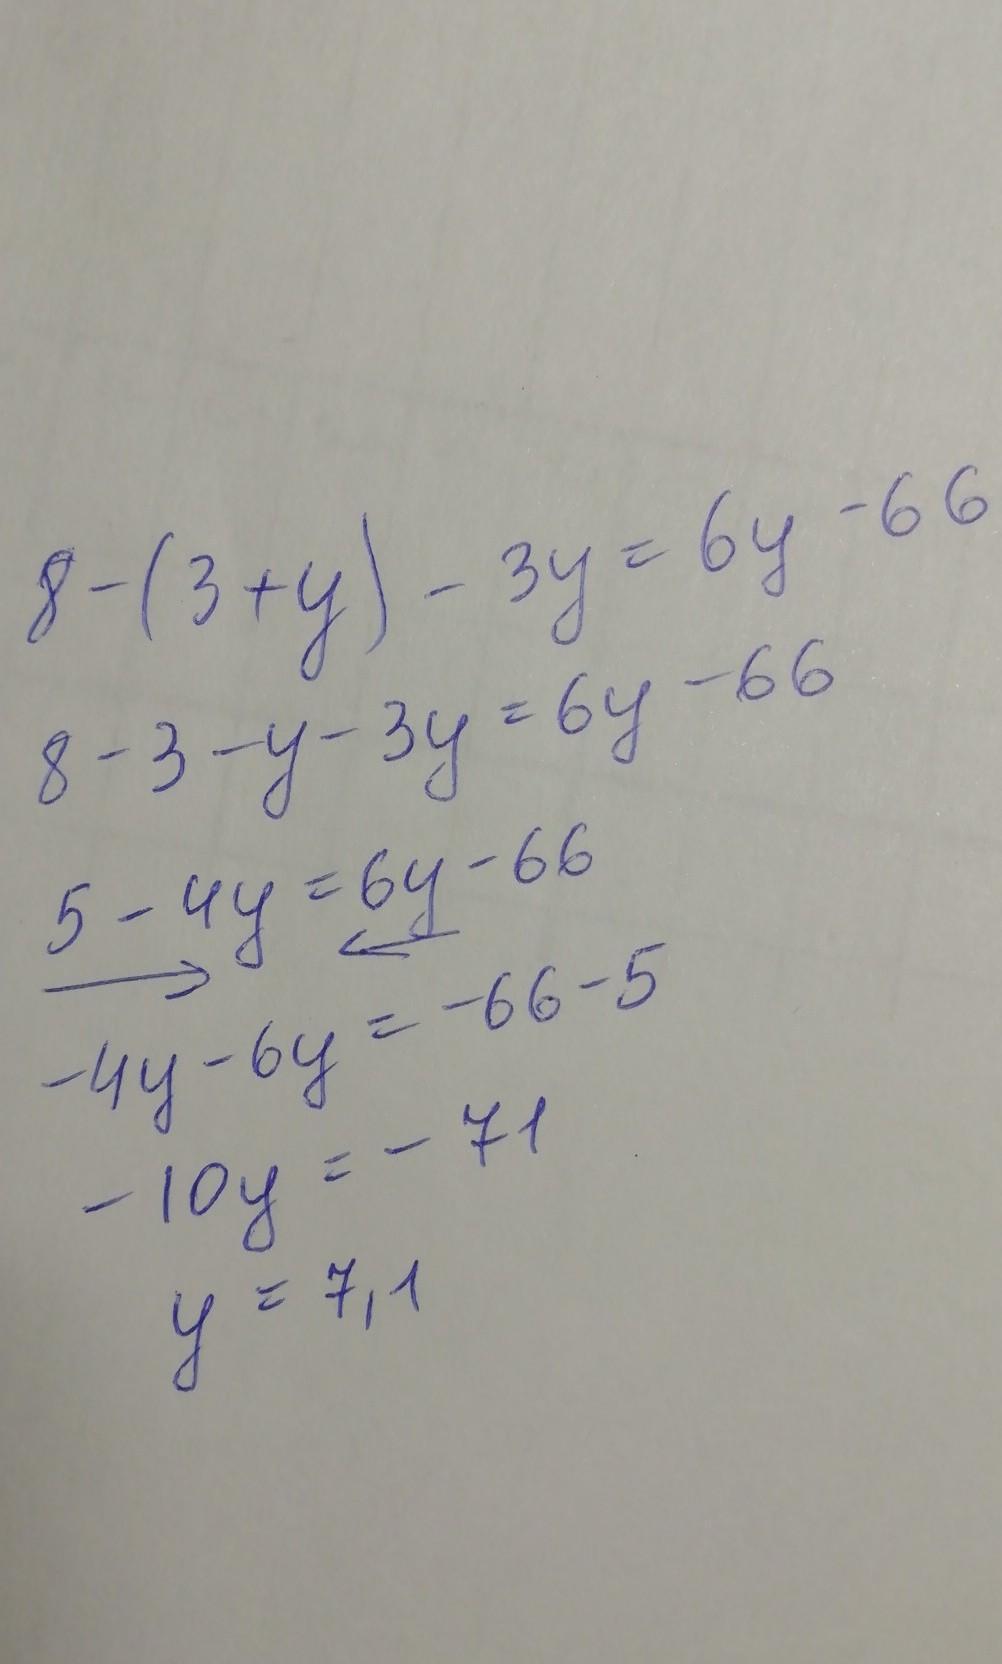 8-(3+y)-3y=6y-66
8-3-y-3y=6y-66
5-4y=6y-66
-4y-6y=-66-5
-10y=-71
y=7,1